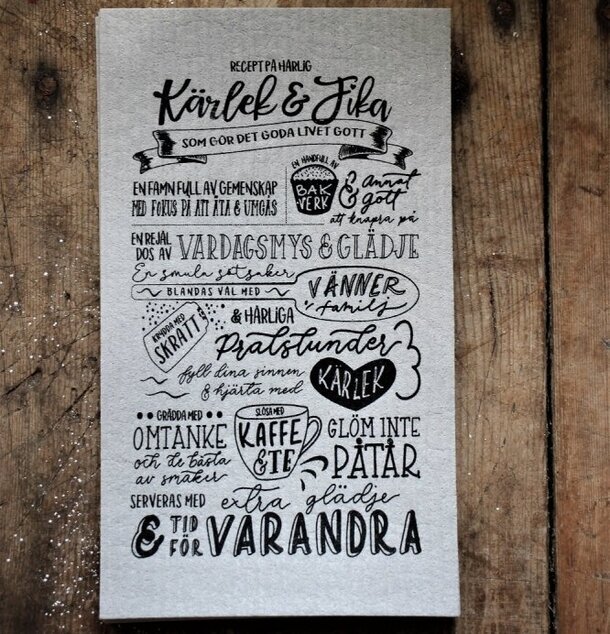 RECEPT PÅ HÄRLIG
Kärlek & Fika
SOM GÖR DET GODA LIVET GOTT
EN FAMN FULL AV GEMENSKAP
MED FOKUS PÅ ATT ÄTA & UMGÅS
EN HANDFULL AV
BAK
VERK
& Annat
gott
att knapra på
EN REJÄL
DOS AV VARDAGSMYS & GLÄDJE
En smula sötsaker
BLANDAS VÄL MED
VÄNNER
familj
KRYDDA MED
SKRATT!
& HÄRLIGA
Pratstunder
fyll dina sinnen
& hjärta med
KÄRLEK
GRÄDDA MED
OMTANKE
och de bästa
av smaker
SLÖSA MED
KAFFE
& TE
GLÖM INTE
PÅTÅR
SERVERAS MED extra glädje
& TID
FÖR VARANDRA